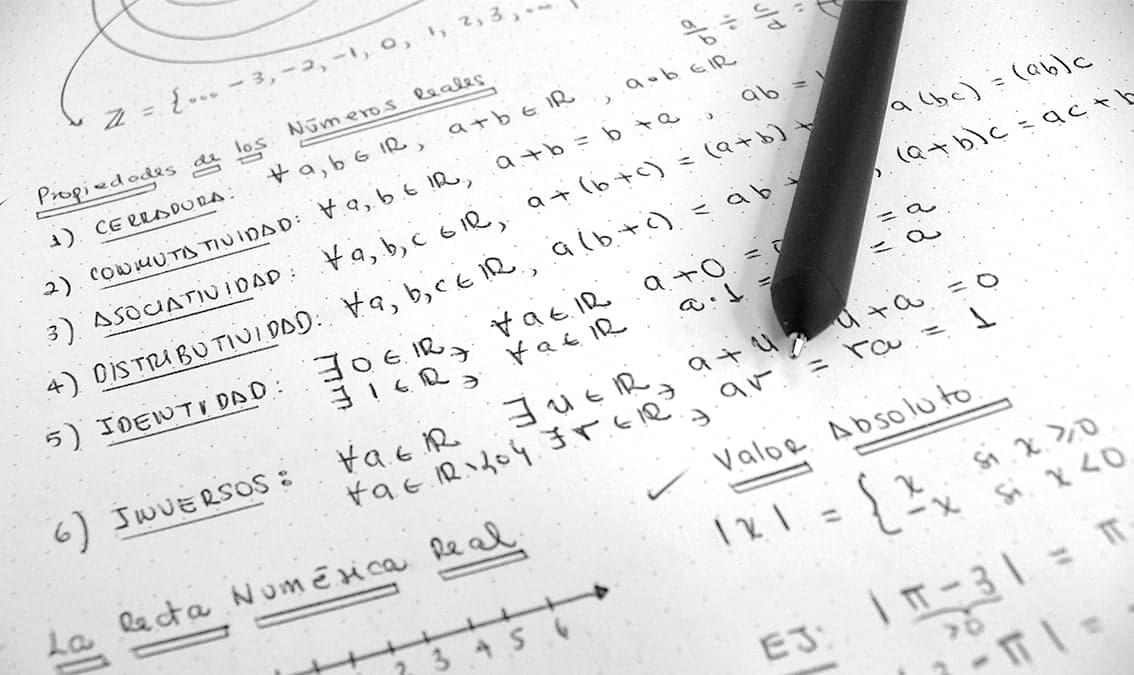 ℤ = {... -3, -2, -1, 0, 1, 2, 3, ...
a/b ÷ c/d =
Propiedades de los Números Reales
1) CERRADURA: ∀ a, b ∈ ℝ, a+b ∈ ℝ, a·b ∈ ℝ
2) CONMUTATIVIDAD: ∀ a, b ∈ ℝ, a+b = b+a, ab =
3) ASOCIATIVIDAD: ∀ a, b, c ∈ ℝ, a+(b+c) = (a+b)+ a(bc) = (ab)c
4) DISTRIBUTIVIDAD: ∀ a, b, c ∈ ℝ, a(b+c) = ab + , (a+b)c = ac + b
5) IDENTIDAD: ∃ 0 ∈ ℝ, ∀ a ∈ ℝ a+0 = = a
∃ 1 ∈ ℝ, ∀ a ∈ ℝ a·1 = = a
6) INVERSOS: ∀ a ∈ ℝ ∃ u ∈ ℝ, a+u u+a = 0
∀ a ∈ ℝ\{0} ∃ r ∈ ℝ, ar = ra = 1
La Recta Numérica Real
2 3 4 5 6
✓ Valor Absoluto
|x| = { x si x ≥ 0
-x si x < 0
EJ: |π-3| = π
>0
-π| =